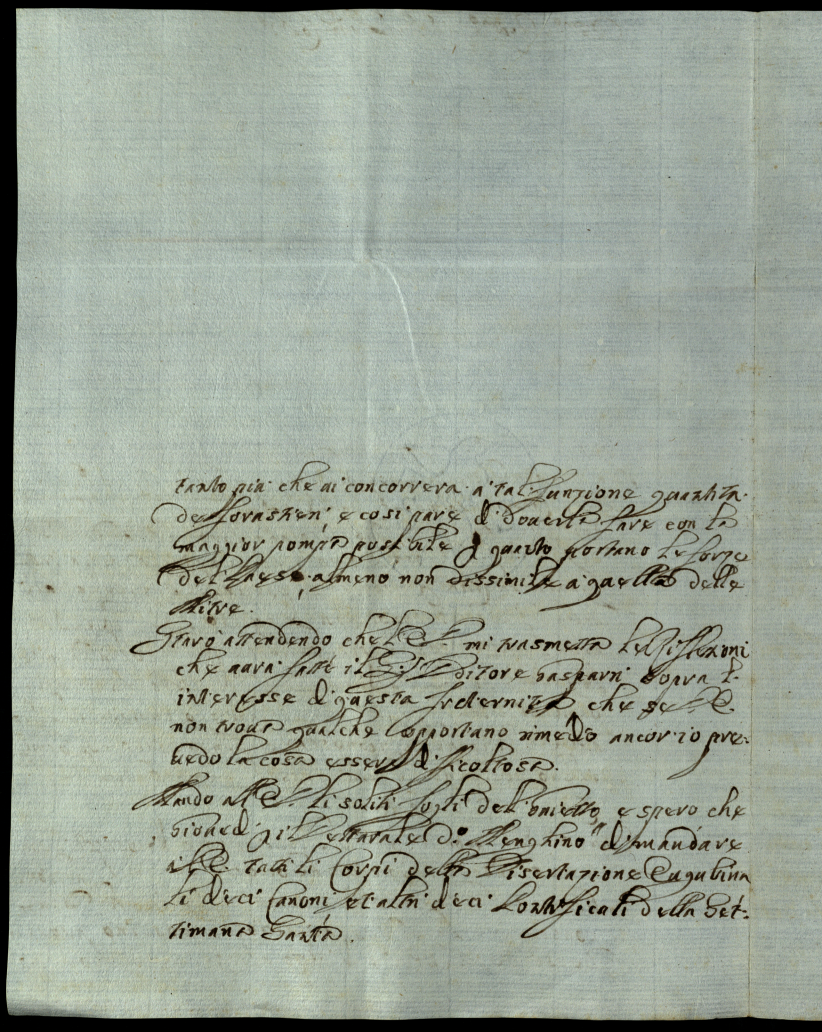 tanto più che vi concorrera a' tal Funzione quantità
de Forastieri e così pare di doverla fare con la
maggior pompa possibile p quanto portano le forze
del Paese, almeno non dissimile a' quella delle
Mitre.
Starò attendendo che V. S. mi trasmetta le riflessioni
che avrà fatte il Sig.r Uditore Gasparri sopra l'
interesse di questa fraternita che se V. S.
non trova qualche opportuno rimedio ancor io pre:
vedo la cosa essere difficoltosa.
Mando a V. S. li soliti fogli del e spero che
giovedì il Vetturale D.o Menghino di mandare
a V. S. tutti li Corpi della Disertazione Eugubina
li dieci Canoni et altri dieci Pontificali della Set:
timana Santa.